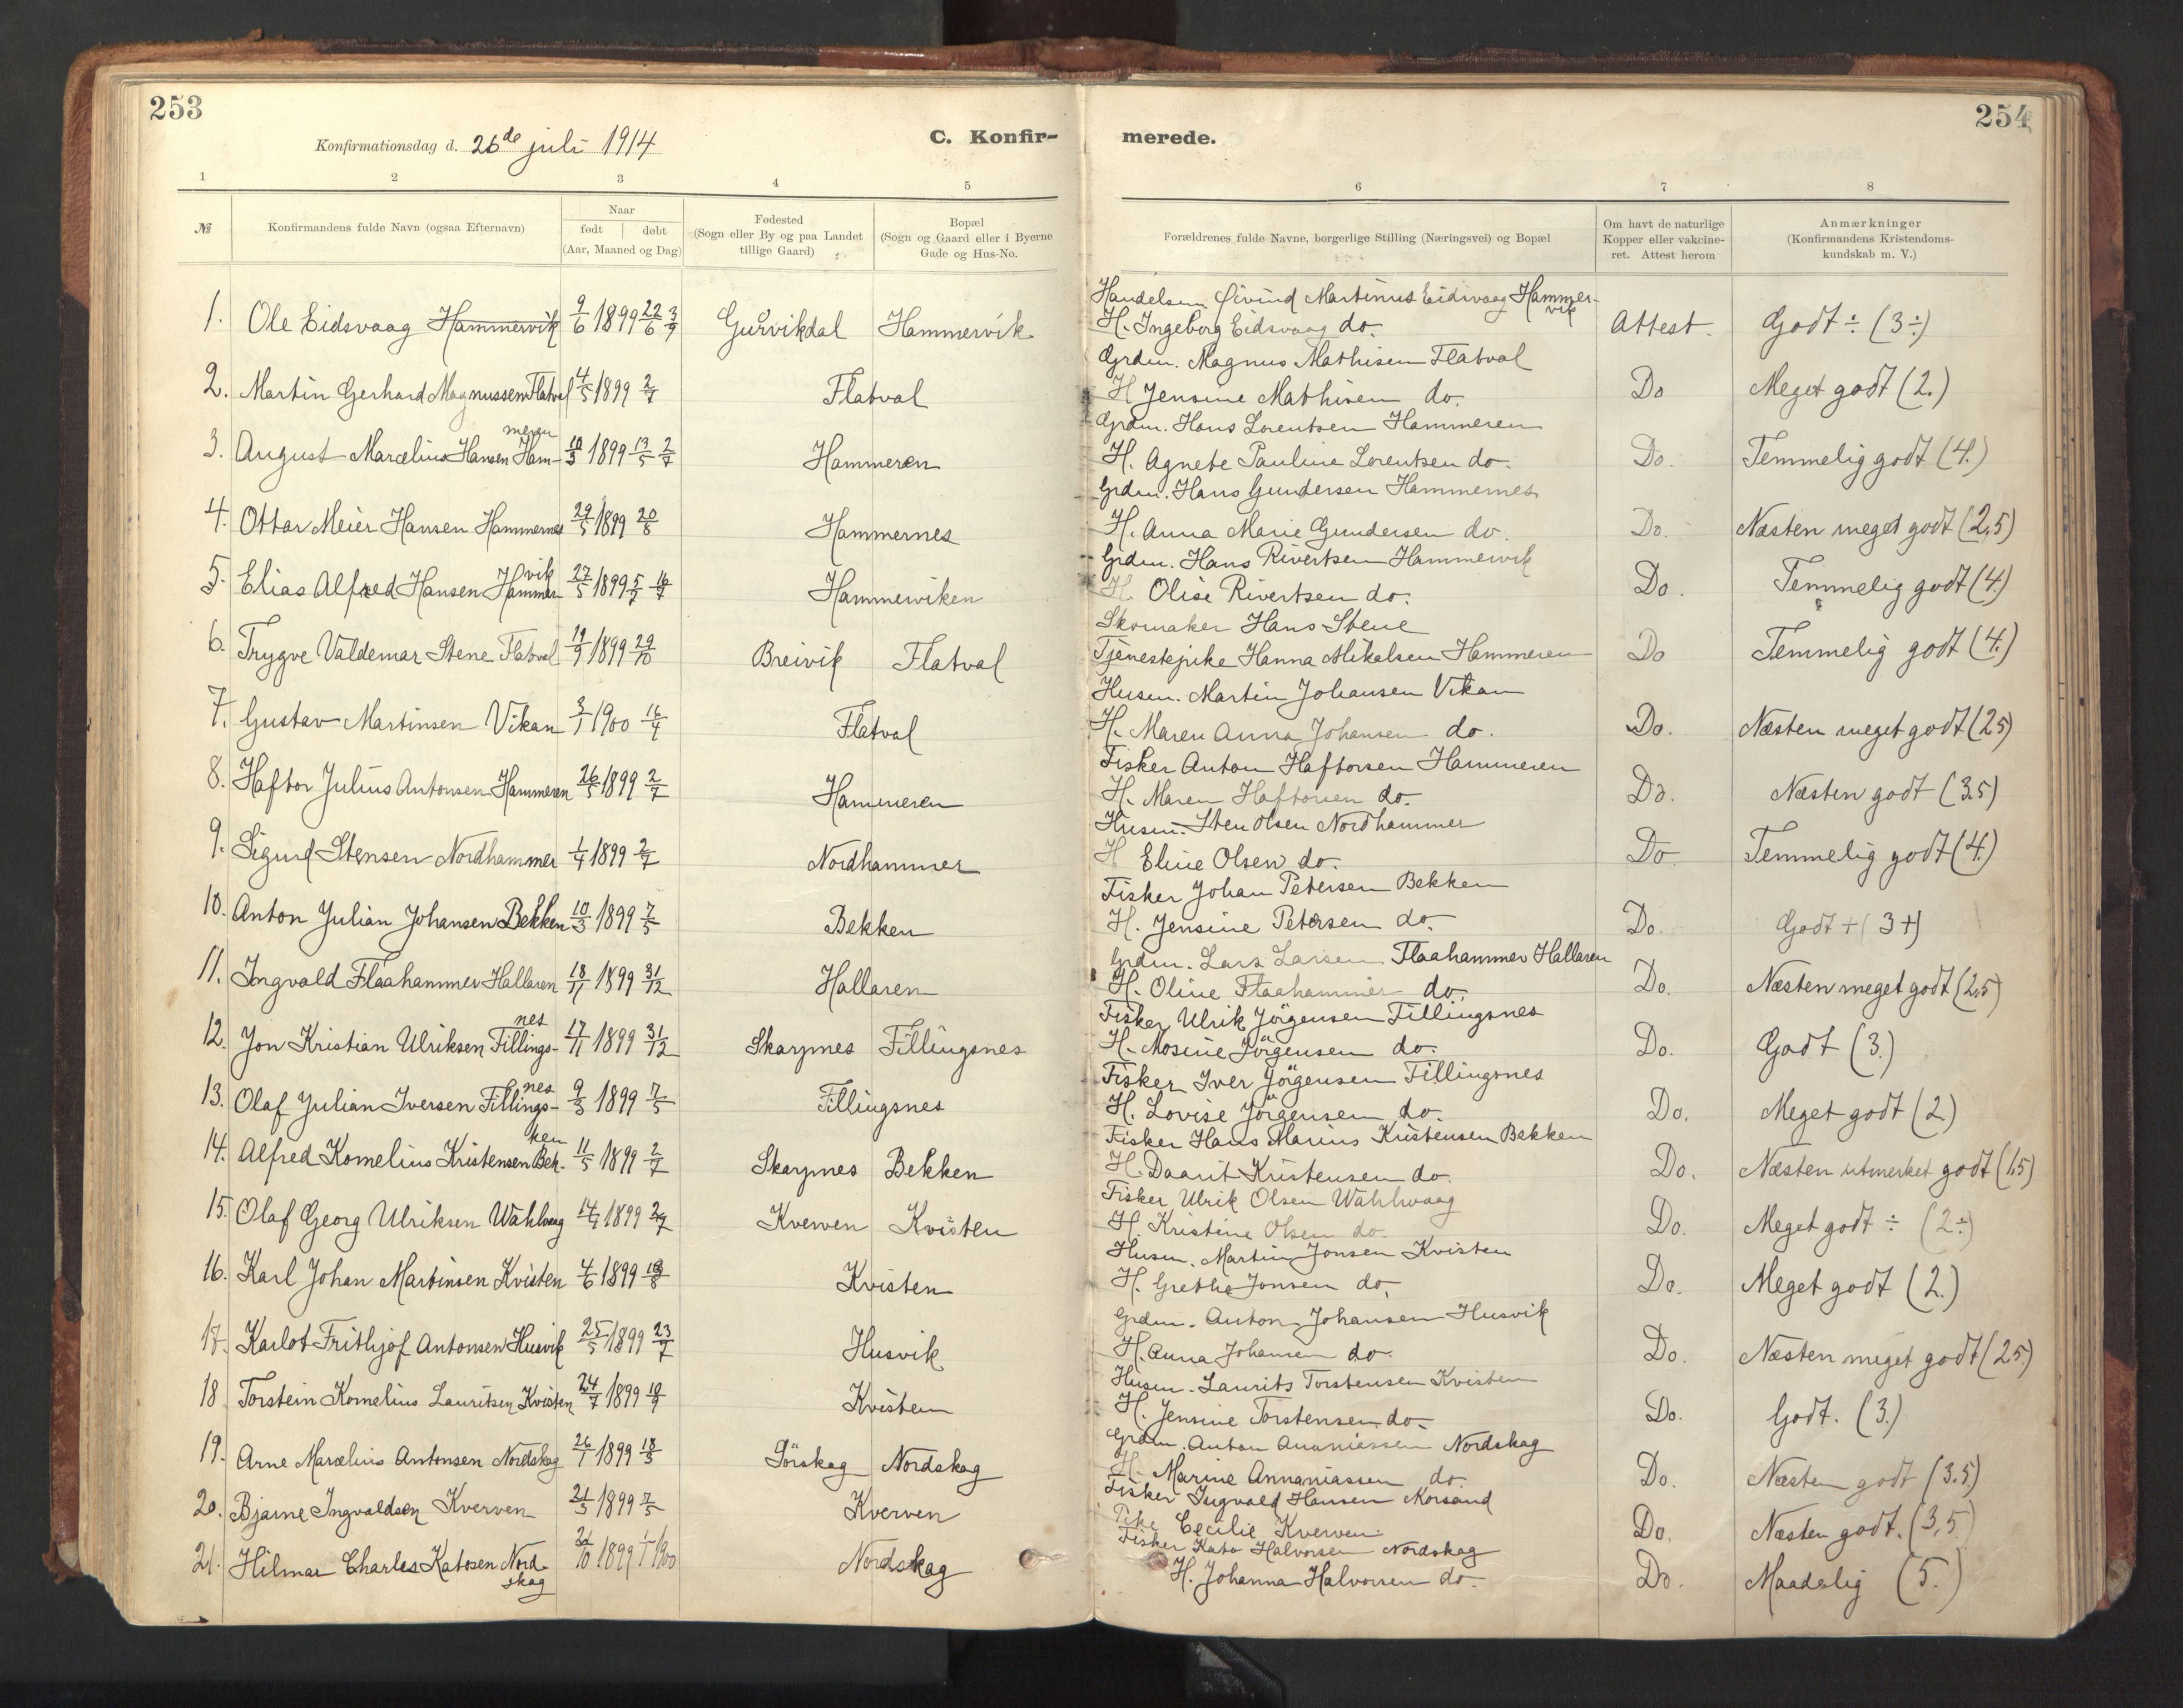 253
254
Konfirmationsdag d. 26de juli 1914
C. Konfir-
merede.
1 2 3 4 5 6 7 8
№
Konfirmandens fulde Navn (ogsaa Efternavn)
Naar
født døbt
(Aar, Maaned og Dag)
Fødested
(Sogn eller By og paa Landet
tillige Gaard)
Bopæl
(Sogn og Gaard eller i Byerne
Gade og Hus-No.
Forældrenes fulde Navne, borgerlige Stilling (Næringsvei) og Bopæl
Om havt de naturlige
Kopper eller vakcine-
ret. Attest herom
Anmærkninger
(Konfirmandens Kristendoms-
kundskab m. V.)
Handelsm. Øivind Martinus Eidsvaag Hammer-
vik
1. Ole Eidsvaag Hammervik 9/6 1899 22/6 3/9 Gurvikdal Hammervik H. Ingeborg Eidsvaag do. Attest. Godt ÷ (3÷)
Grdm. Magnus Mathisen Flatval
2. Martin Gerhard Magnussen Flatval 4/5 1899 2/7 Flatval H Jensine Mathisen do. Do Meget godt (2.)
Grdm. Hans Lorentsen Hammeren
meren
3. August Marcelius Hansen Ham- 10/3 1899 13/5 2/7 Hammeren H. Agnete Pauline Lorentsen do. Do. Temmelig godt (4.)
Grdm. Hans Gundersen Hammernes
4. Ottar Meier Hansen Hammernes 29/5 1899 20/8 Hammernes H. Anna Marie Gundersen do. Do. Næsten meget godt (2,5)
Grdm. Hans Rivertsen Hammervik
vik
5. Elias Alfred Hansen Hammer 27/5 1899 5/7 16/7 Hammerviken H Olise Rivertsen do. Do. Temmelig godt (4.)
Skomaker Hans Stene
6. Trygve Valdemar Stene Flatval 19/9 1899 29/10 Breivik Flatval Tjenestepike Hanna Mikalsen Hammeren Do Temmelig godt (4.)
Husm. Martin Johansen Vikan
7. Gustav Martinsen Vikan 3/1 1900 16/4 Flatval H. Maren Anna Johansen do. Do. Næsten meget godt (2.5)
Fisker Anton Haftorsen Hammeren
8. Haftor Julius Antonsen Hammeren 26/5 1899 2/7 Hammeren H. Maren Haftorsen do. Do. Næsten godt (3.5)
Husm. Sten Olsen Nordhammer
9. Sigurd Stensen Nordhammer 1/4 1899 2/7 Nordhammer H Eline Olsen do. Do Temmelig godt (4.)
Fisker Johan Petersen Bekken
10. Anton Julian Johansen Bekken 10/3 1899 7/5 Bekken H. Jensine Petersen do. Do. Godt + (3+)
Grdm. Lars Larsen Flaahammer Hallaren
11. Ingvald Flaahammer Hallaren 18/11 1899 31/12 Hallaren H. Oline Flaahammer do. Do. Næsten meget godt (2,5)
Fisker Ulrik Jörgensen Fillingsnes
nes
12. Jon Kristian Ulriksen Fillings- 17/11 1899 31/12 Skarpnes Fillingsnes H. Mosine Jörgensen do. Do. Godt (3.)
Fisker Iver Jörgensen Fillingsnes
nes
13. Olaf Julian Iversen Fillings- 9/3 1899 7/5 Fillingsnes H. Lovise Jörgensen do. Do. Meget godt (2)
Fisker Hans Marius Kristensen Bekken
ken
14. Alfred Kornelius Kristensen Bek- 11/5 1899 2/7 Skarpnes Bekken H. Daarit Kristensen do. Do. Næsten utmerket godt (1,5)
Fisker Ulrik Olsen Wahlvaag
15. Olaf Georg Ulriksen Wahlvaag 14/4 1899 2/7 Kverven Kvisten H. Kristine Olsen do. Do. Meget godt ÷ (2÷)
Husm. Martin Jonsen Kvisten
16. Karl Johan Martinsen Kvisten 4/6 1899 13/8 Kvisten H. Grethe Jonsen do. Do. Meget godt (2.)
Grdm. Anton Johansen Husvik
17. Karlot Frithjof Antonsen Husvik 25/5 1899 23/7 Husvik H. Anna Johansen do. Do. Næsten meget godt (2.5.)
Husm. Laurits Torstensen Kvisten
18. Torstein Kornelius Lauritsen Kvisten 24/7 1899 10/9 Kvisten H. Jensine Torstensen do. Do. Godt. (3.)
Grdm. Anton Ananiassen Nordskag
19. Arne Marcelius Antonsen Nordskag 26/1 1899 18/3 Sörskag Nordskag H. Marine Annaniassen do. Do. Næsten godt (3.5)
Fisker Ingvald Hansen Korsand
20. Bjarne Ingvaldsen Kverven 21/3 1899 7/5 Kverven Pike Cecilie Kverven. Do. Næsten godt. (3,5)
Fisker Kato Halvorsen Nordskag
21. Hilmar Charles Katosen Nord- 1899 1/1 1900 Nordskag H. Johanna Halvorsen do. Do. Maadelig (5.)
skag